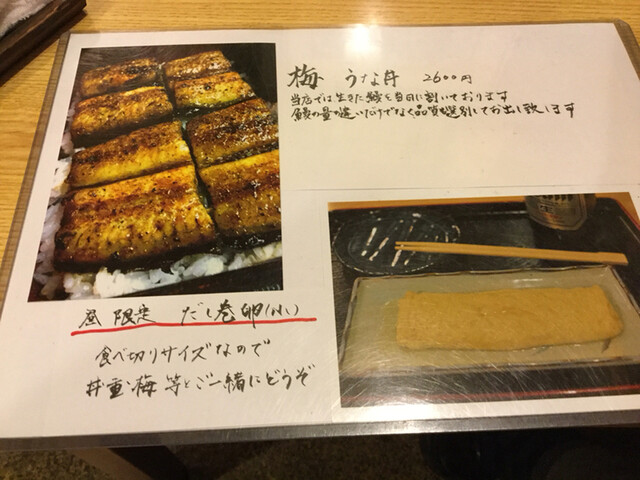 梅 うな丼 2600円
当店では生きた鰻を当日に割いております
鰻の量が違いだけでなく品質も選別してお出し致します
昼限定 だし巻卵(小)
食べ切りサイズなので
丼・重・梅等とご一緒にどうぞ